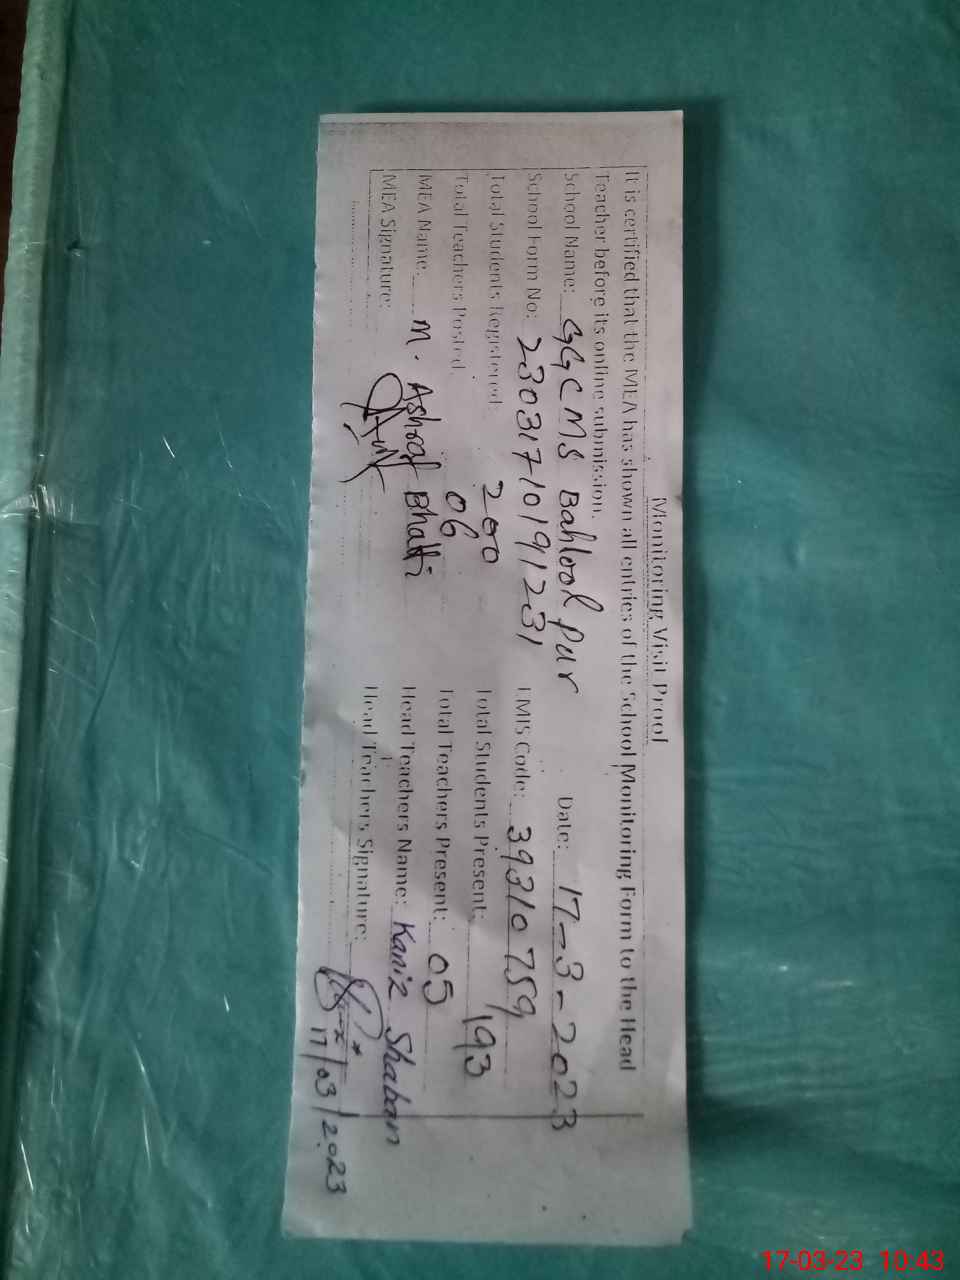 Monitoring Visit Proof
It is certified that the MEA has shown all entries of the School Monitoring Form to the Head
Teacher before its online submission.
School Name: GGCMS Bahlool Pur Date: 17-3-2023
School Form No: 230317101912​31 EMIS Code: 39310759
Total Students Registered: 200 Total Students Present: 193
Total Teachers Posted: 06 Total Teachers Present: 05
MEA Name: M. Ashraf Bhatti Head Teachers Name: Kaniz Shaban
MEA Signature: Head Teachers Signature:
17/03/2023
17-03-23 10:43